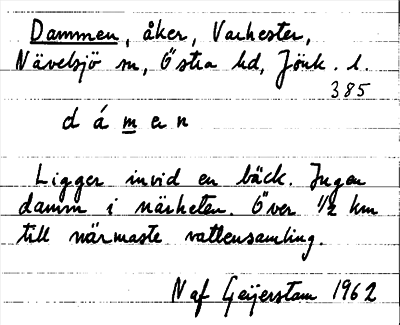 Dammen, åker, Varhester,
Nävelsjö sn, Östra hd, Jönk. l.
385
dámen
Ligger invid en bäck. Ingen
damm i närheten. Över 1/2 km
till närmaste vattensamling.
N af Geijerstam 1962